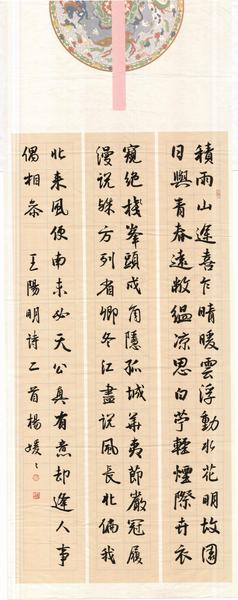 積雨山途喜乍晴暖雲浮動水花明故園
日與青春遠敝縕凉思白苧輕煙際卉衣
窺絕棧峯頭戍角隱孤城華夷節嚴冠履
漫說殊方列省卿冬江盡說風長北偏我
北來風便南未必天公真有意却逢人事
偶相參 王陽明詩二首楊媛〻